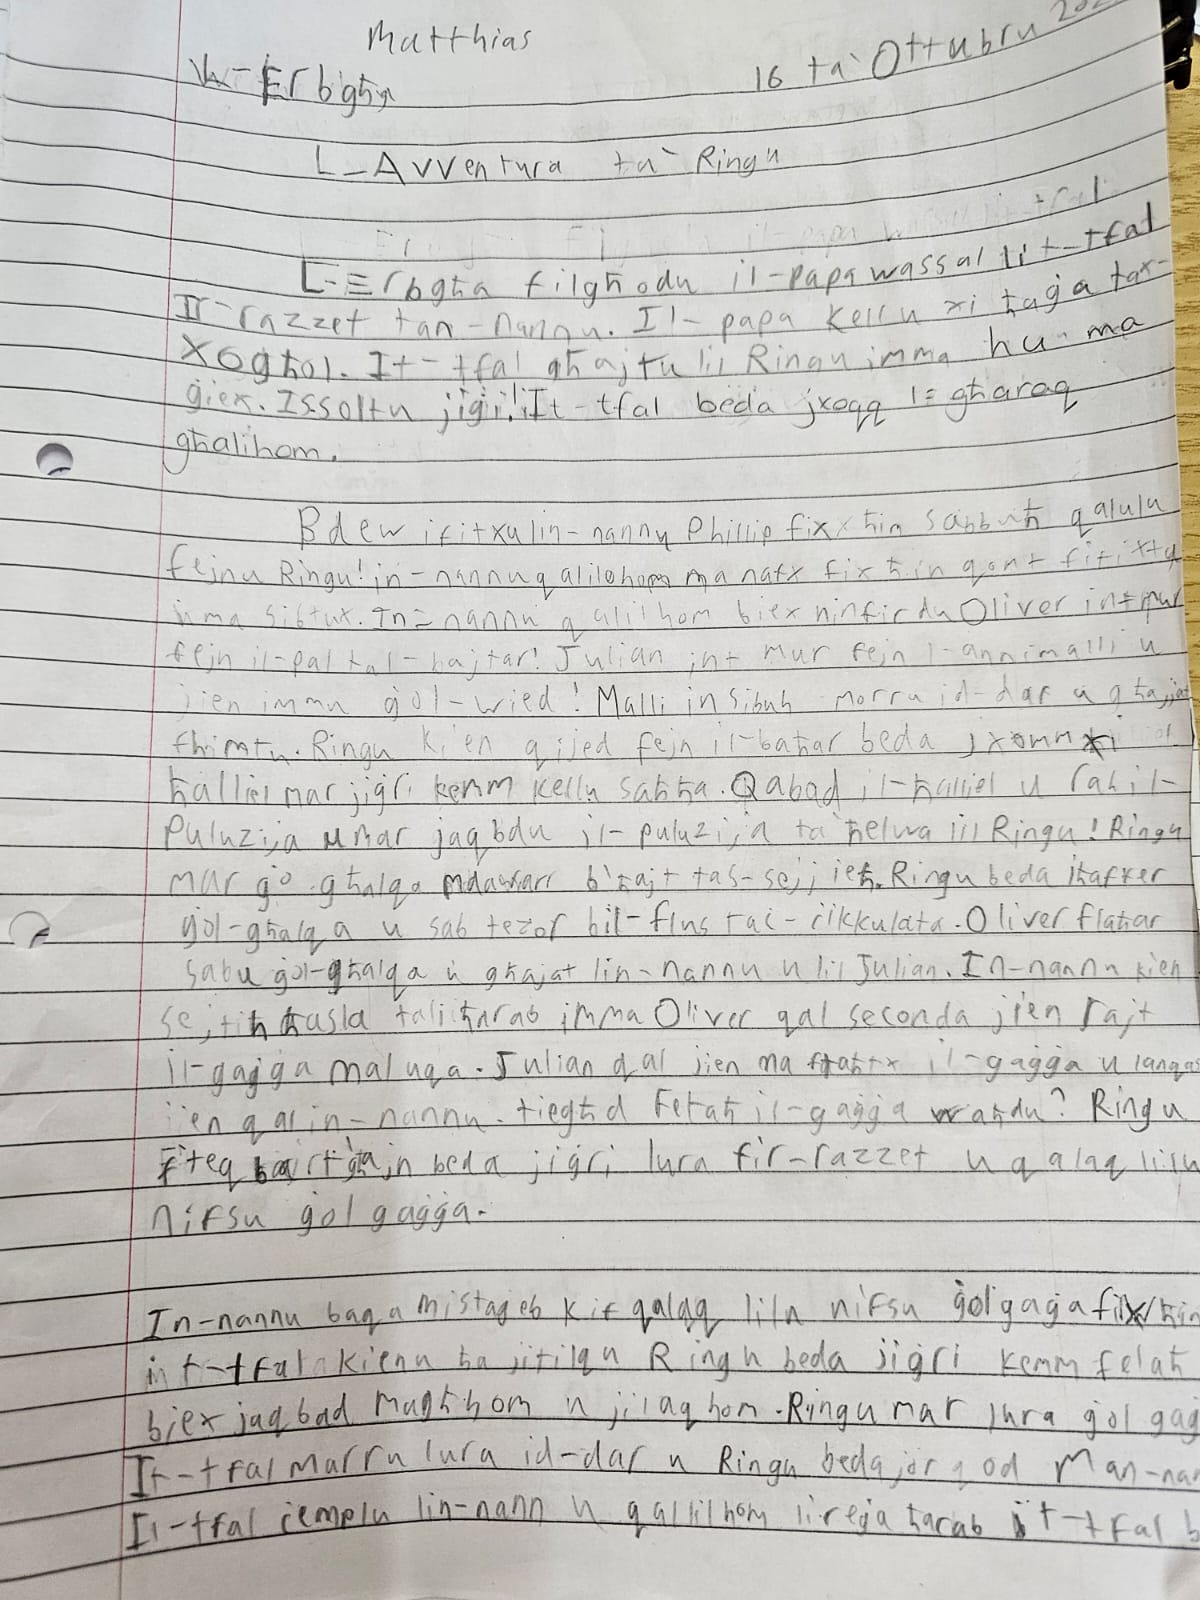 Matthias
16 ta' Ottubru
L-Avventura ta' Ringu
L-Erbgħa filgħodu il-papa wassal lit-tfal
Ir-razzet tan-nannu. Il-papa kellu xi ħaġa tax-
xogħol. It-tfal għajtu lil Ringu imma hu ma
ġiex. Issoltu jiġri! It-tfal beda jxoqq l-għaraq
għalihom.
Bdew ifitxu lin-nannu Phillip fixxħin sabbuħ qalulu
fejnu Ringu! in-nannu qalilhom ma nafx fixħin qont fifixtu
uma sibtux. In-nannu qalilhom biex ninfirdu Oliver int mur
fejn il-pal tal-bajtar! Julian int mur fejn l-annimalli u
jien immu ġol-wied! Malli insibuh morru id-dar u għajjat
fhimtu. Ringu kien qijed fejn il-baħar beda jxomm xi
ħalliel mar jiġri kemm kellu saħħa. Qabad il-ħalliel u rah il-
Puluzija u mar jaqbdu il-puluzija ta ħelwa lil Ringu! Ringu
mar ġo għalqa mdawwarr b'ħajt tas-sejjieħ. Ringu beda iħaffer
ġol-għalqa u sab teżor bil-flus taċ-ċikkulata. Oliver flaħar
sabu ġol-għalqa u għajat lin-nannu u lil Julian. In-nannu kien
sejtih ħasla taliħarab imma Oliver qal seconda jien rajt
il-gaġġa maluqa. Julian qal jien ma ftaħtx il-gaġġa u lanqas
jien qal in-nannu. tiegħd Fetaħ il-gaġġa waħdu? Ringu
Fiteq beda jiġri lura fir-razzet u qalaq lilu
nifsu ġol gaġġa.
In-nannu baqa mistaġeb kif qalaq lilu nifsu ġol gaġa fixħin
it-tfal kienu ħa jitilqu Ringu beda jiġri kemm felaħ
biex jaqbad magħhom u jilaqhom. Ringu mar lura ġol gaġ
It-tfal marru lura id-dar u Ringu beda jorqod
It-tfal ċemplu lin-nann u qallilhom li reġa ħarab it-tfal b